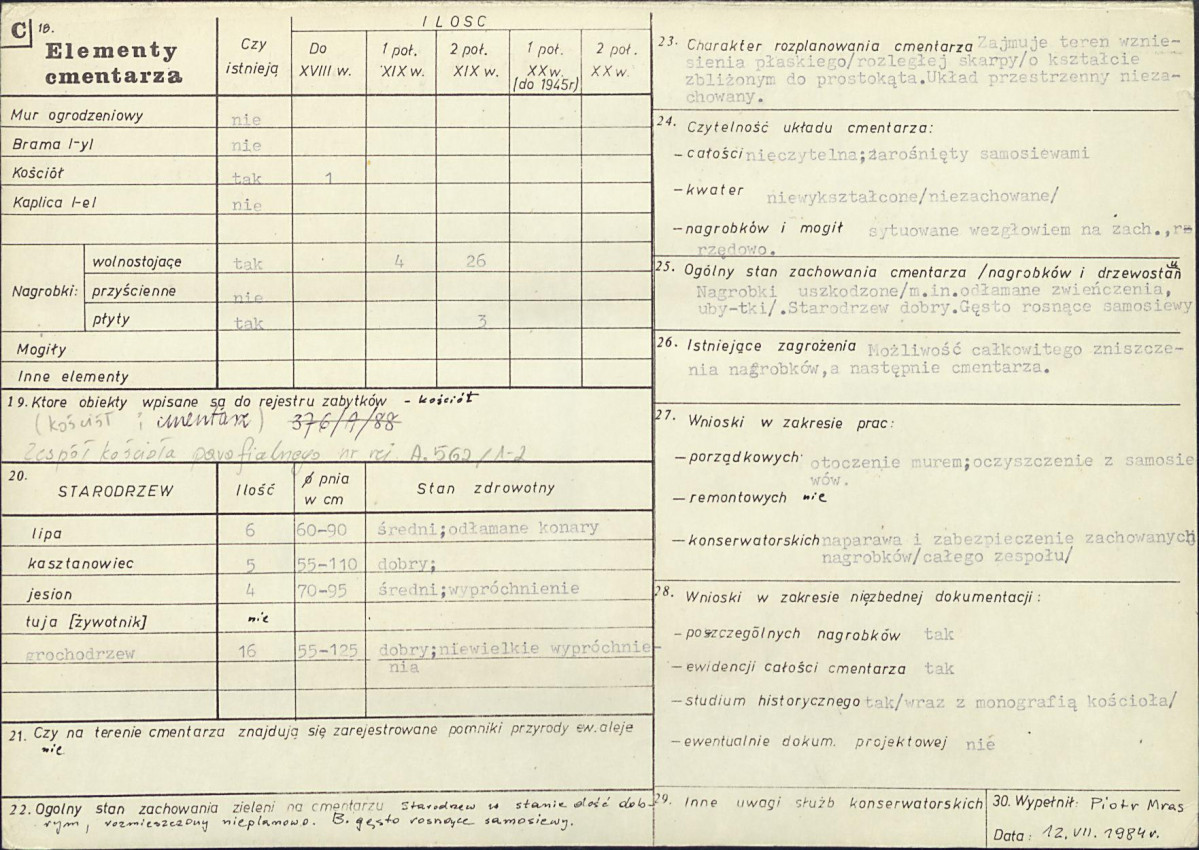 C 18.
Elementy
cmentarza
Czy
istnieją
ILOŚĆ
Do
XVIII w.
1 poł.
XIX w.
2 poł.
XIX w.
1 poł.
XX w.
(do 1945r)
2 poł.
XX w.
Mur ogrodzeniowy nie
Brama /-y/ nie
Kościół tak 1
Kaplica /-e/ nie
Nagrobki:
wolnostojące tak 4 26
przyścienne nie
płyty tak 3
Mogiły
Inne elementy
19. Ktore obiekty wpisane są do rejestru zabytków - kościół
(kościół i cmentarz) 376/A/88
Zespół kościoła parafialnego nr rej. A.562/1-2
20.
STARODRZEW Ilość ø pnia
w cm Stan zdrowotny
lipa 6 60-90 średni;odłamane konary
kasztanowiec 5 55-110 dobry;
jesion 4 70-95 średni;wypróchnienie
tuja [żywotnik] nie
grochodrzew 16 55-125 dobry;niewielkie wypróchnie-
nia
21. Czy na terenie cmentarza znajdują się zarejestrowane pomniki przyrody ew. aleje
nie
22. Ogolny stan zachowania zieleni na cmentarzu Starodrzew w stanie dość dob-
rym, rozmieszczony nieplanowo. B. gęsto rosnące samosiewy.
23. Charakter rozplanowania cmentarza Zajmuje teren wznie-
sienia płaskiego/rozległej skarpy/o kształcie
zbliżonym do prostokąta.Układ przestrzenny nieza-
chowany.
24. Czytelność układu cmentarza:
- całości nieczytelna;zarośnięty samosiewami
- kwater niewykształcone/niezachowane/
- nagrobków i mogił sytuowane wezgłowiem na zach.,
rzędowo.
25. Ogólny stan zachowania cmentarza /nagrobków i drzewostanu
Nagrobki uszkodzone/m.in.odłamane zwieńczenia,
uby-tki/.Starodrzew dobry.Gęsto rosnące samosiewy
26. Istniejące zagrożenia Możliwość całkowitego zniszcze-
nia nagrobków,a następnie cmentarza.
27. Wnioski w zakresie prac:
- porządkowych otoczenie murem;oczyszczenie z samosie
wów.
- remontowych nie
- konserwatorskich naparawa i zabezpieczenie zachowanych
nagrobków/całego zespołu/
28. Wnioski w zakresie niezbędnej dokumentacji:
- poszczególnych nagrobków tak
- ewidencji całości cmentarza tak
- studium historycznego tak/wraz z monografią kościoła/
- ewentualnie dokum. projektowej nie
29. Inne uwagi służb konserwatorskich
30. Wypełnił: Piotr Mras
Data: 12.VII.1984r.